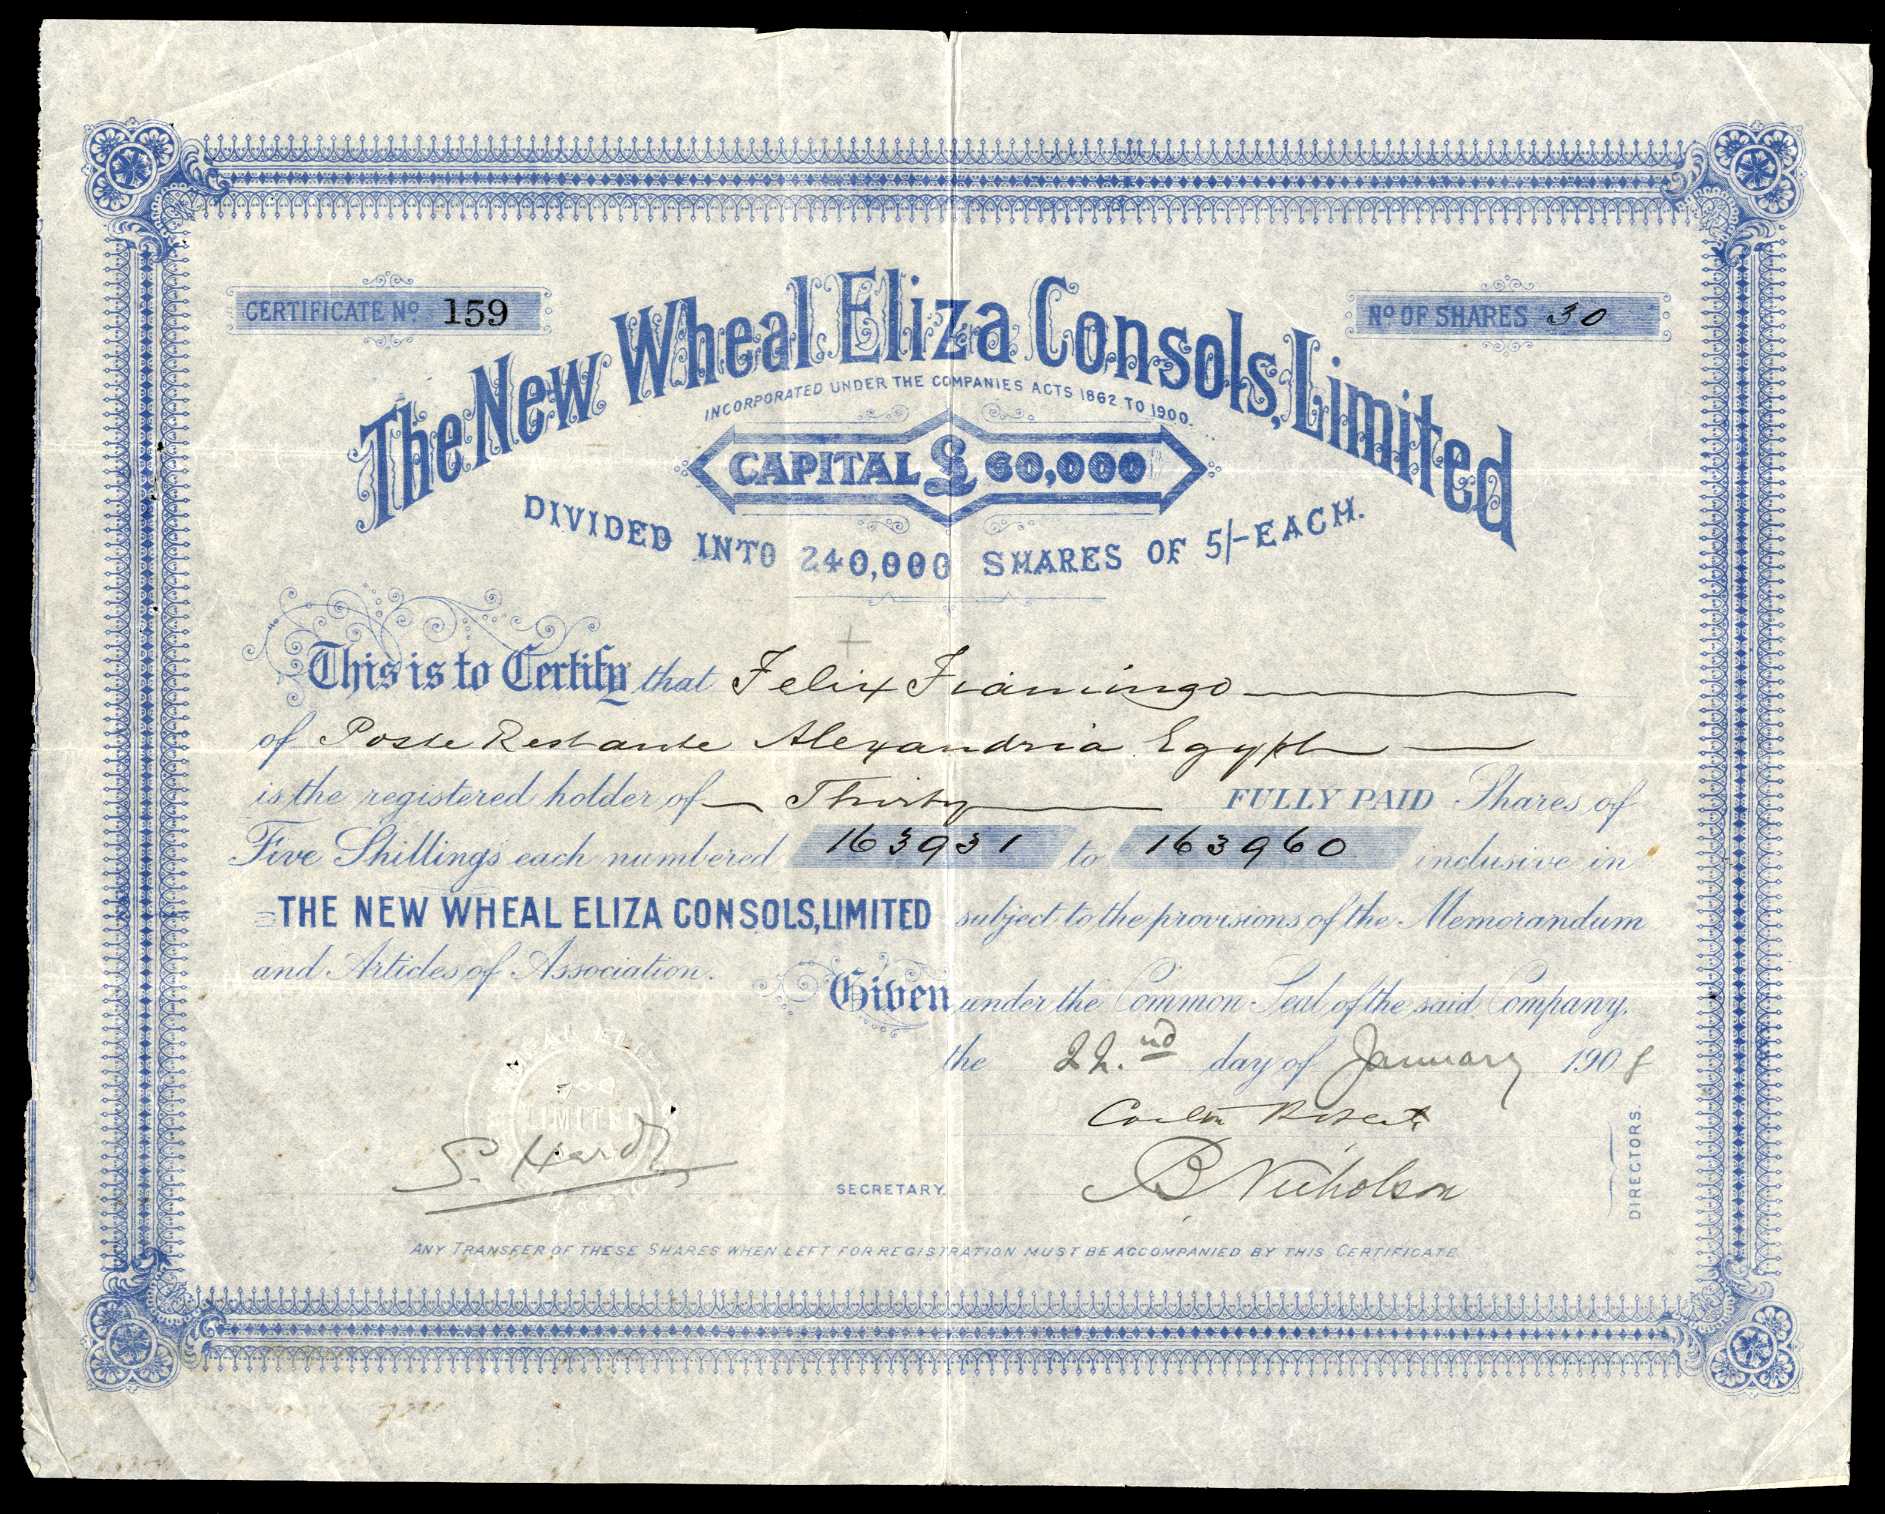 CERTIFICATE No. 159
No. OF SHARES 30
The New Wheal Eliza Consols, Limited
INCORPORATED UNDER THE COMPANIES ACTS 1862 TO 1900.
CAPITAL £60,000
DIVIDED INTO 240,000 SHARES OF 5/- EACH.
This is to Certify that Felix Fiamingo
of Poste Restante Alexandria Egypt
is the registered holder of Thirty FULLY PAID Shares of
Five Shillings each numbered 163931 to 163960 inclusive in
THE NEW WHEAL ELIZA CONSOLS, LIMITED subject to the provisions of the Memorandum
and Articles of Association.
Given under the Common Seal of the said Company,
the 22.nd day of January 1908
LIMITED
B Nicholson
DIRECTORS.
S. Hardy
SECRETARY.
ANY TRANSFER OF THESE SHARES WHEN LEFT FOR REGISTRATION MUST BE ACCOMPANIED BY THIS CERTIFICATE